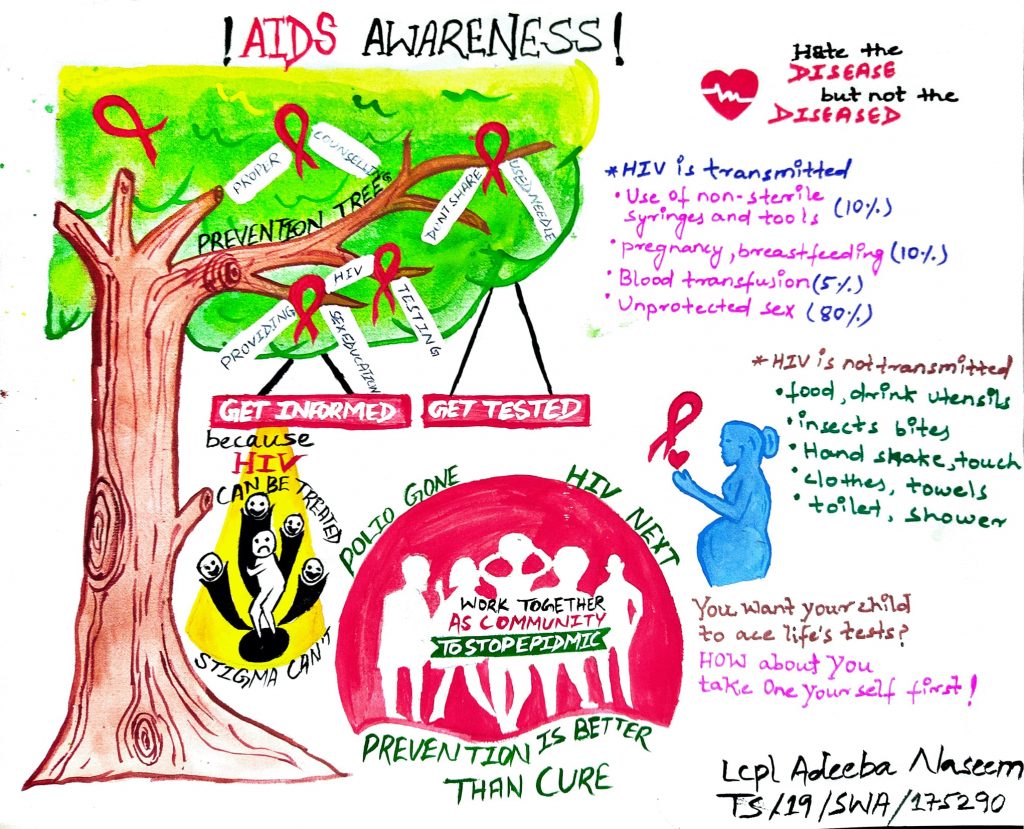 ! AIDS AWARENESS !
Hate the
DISEASE
but not the
DISEASED
PROPER
COUNSELLING
PREVENTION TREE
DON'T SHARE
USED NEEDLE
PROVIDING
SEX EDUCATION
HIV
TESTING
GET INFORMED
GET TESTED
because
HIV
CAN BE TREATED
STIGMA CAN'T
POLIO GONE
HIV NEXT
WORK TOGETHER
AS COMMUNITY
TO STOP EPIDMIC
PREVENTION IS BETTER
THAN CURE
* HIV is transmitted
• Use of non-sterile
syringes and tools (10%)
• pregnancy, breastfeeding (10%)
• Blood transfusion (5%)
• Unprotected sex (80%)
* HIV is not transmitted
• food, drink utensils
• insects bites
• Hand shake, touch
• clothes, towels
• toilet, shower
You want your child
to ace life's tests?
HOW about You
take One yourself first!
Lcpl Adeeba Naseem
TS/19/SWA/175290